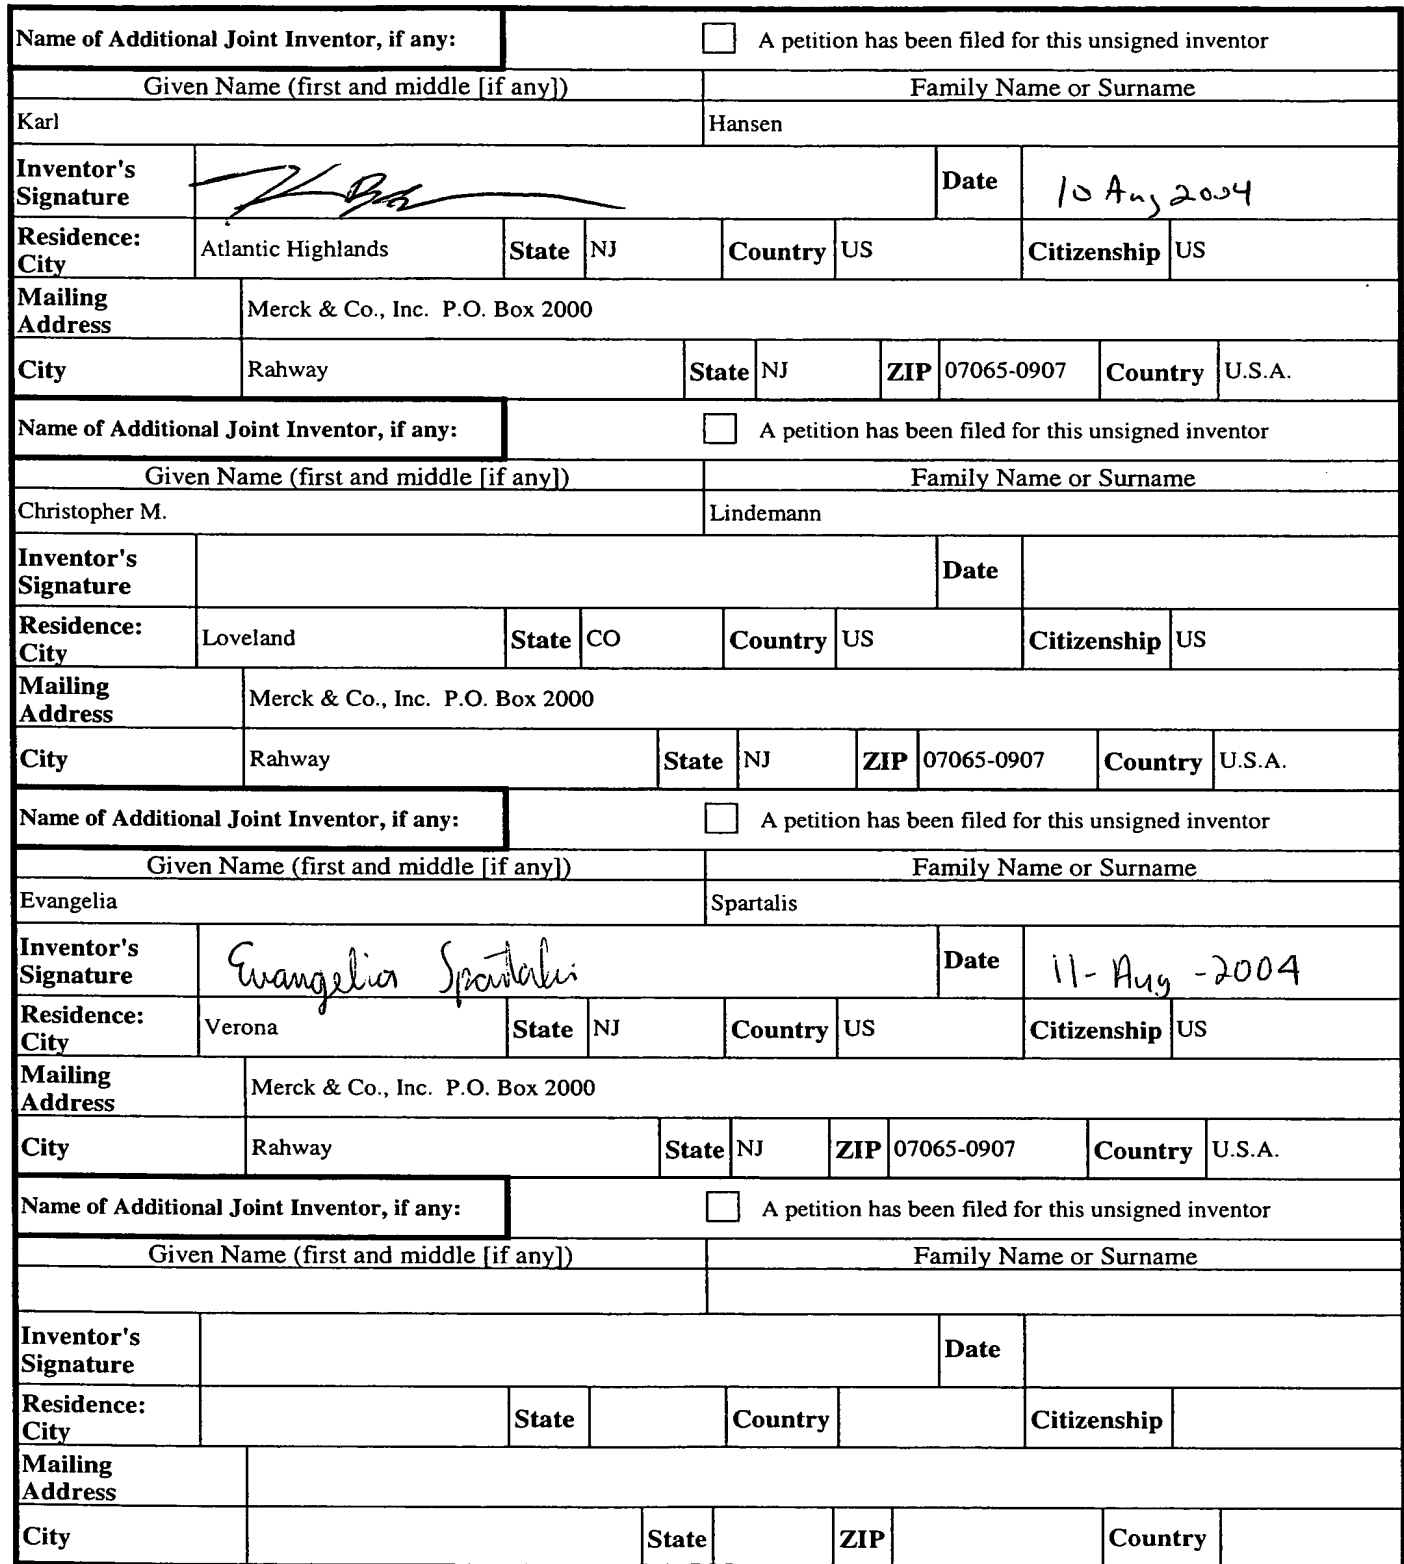 Name of Additional Joint Inventor, if any: A petition has been filed for this unsigned inventor
Given Name (first and middle [if any]) Family Name or Surname
Karl Hansen
Inventor's Signature Date 10 Aug 2004
Residence: City Atlantic Highlands State NJ Country US Citizenship US
Mailing Address Merck & Co., Inc. P.O. Box 2000
City Rahway State NJ ZIP 07065-0907 Country U.S.A.
Name of Additional Joint Inventor, if any: A petition has been filed for this unsigned inventor
Given Name (first and middle [if any]) Family Name or Surname
Christopher M. Lindemann
Inventor's Signature Date
Residence: City Loveland State CO Country US Citizenship US
Mailing Address Merck & Co., Inc. P.O. Box 2000
City Rahway State NJ ZIP 07065-0907 Country U.S.A.
Name of Additional Joint Inventor, if any: A petition has been filed for this unsigned inventor
Given Name (first and middle [if any]) Family Name or Surname
Evangelia Spartalis
Inventor's Signature Evangelia Spartalis Date 11-Aug-2004
Residence: City Verona State NJ Country US Citizenship US
Mailing Address Merck & Co., Inc. P.O. Box 2000
City Rahway State NJ ZIP 07065-0907 Country U.S.A.
Name of Additional Joint Inventor, if any: A petition has been filed for this unsigned inventor
Given Name (first and middle [if any]) Family Name or Surname
Inventor's Signature Date
Residence: City State Country Citizenship
Mailing Address
City State ZIP Country